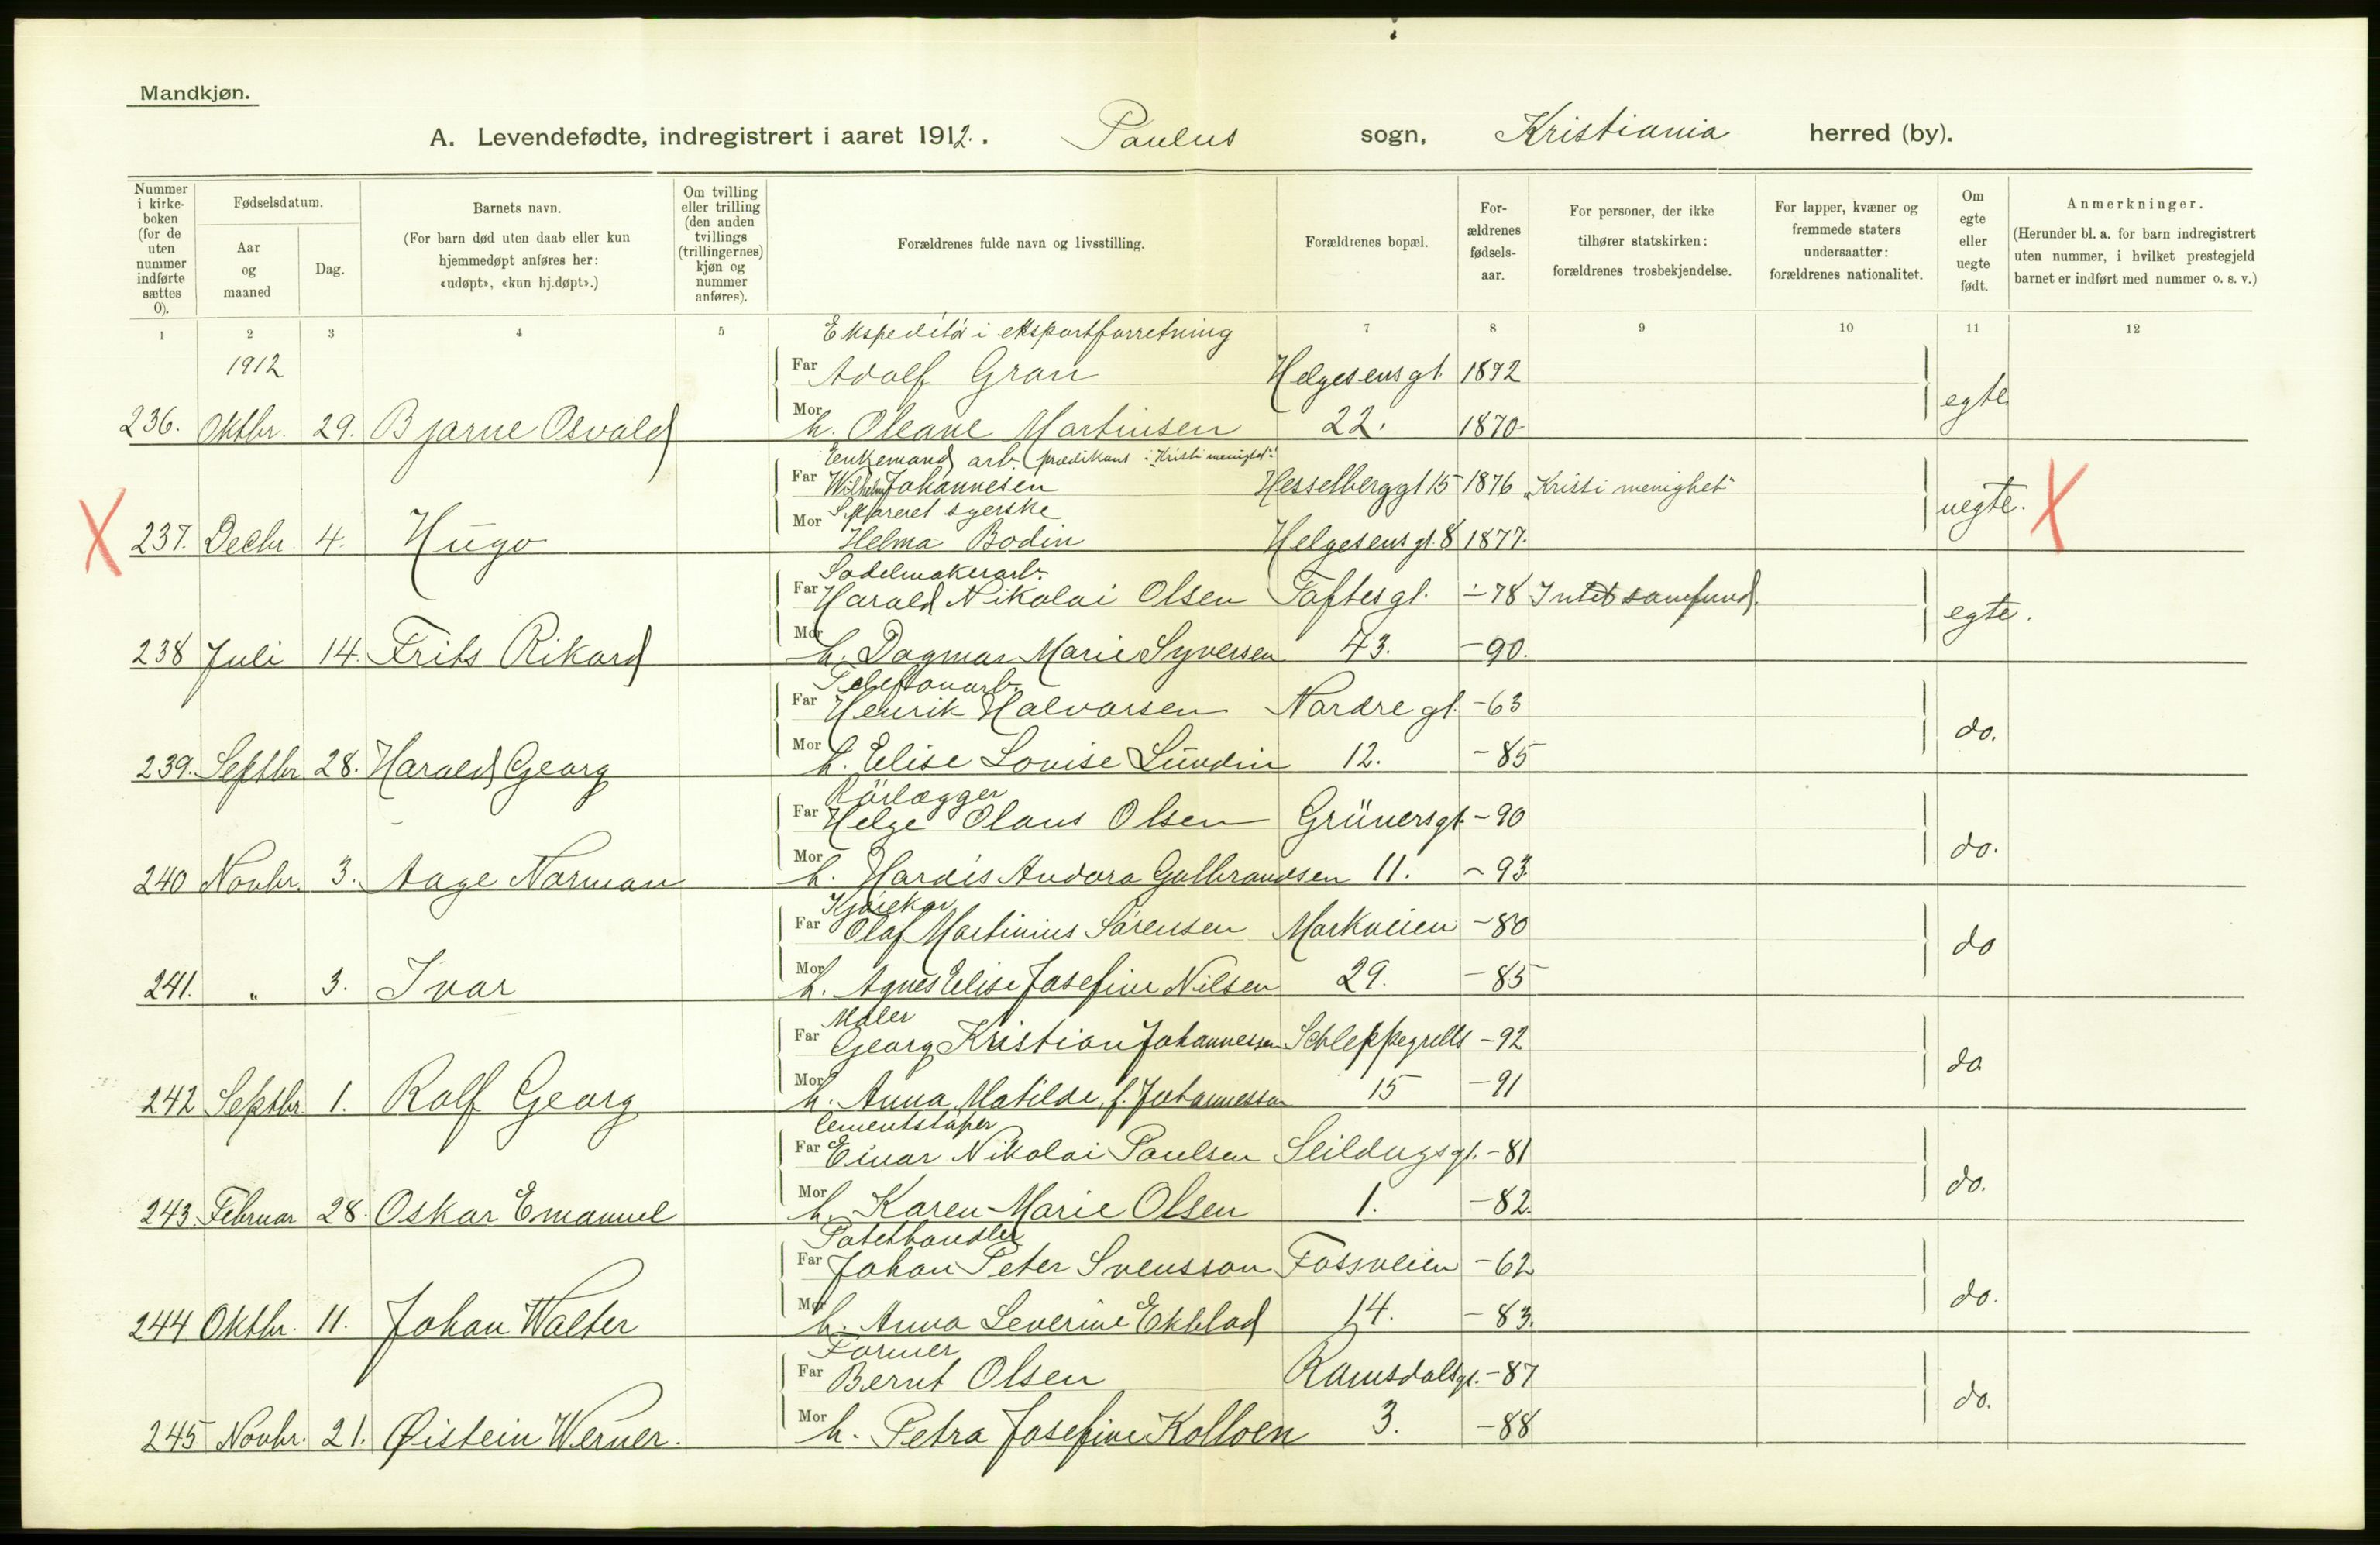 Mandkjøn.
A. Levendefødte, indregistrert i aaret 1912. . Paulus sogn, Kristiania herred (by).
Nummer i kirke-boken (for de uten nummer indførte sættes 0).
Fødselsdatum.
Aar og maaned
Dag.
Barnets navn.
(For barn død uten daab eller kun hjemmedøpt anføres her: «udøpt», «kun hj.døpt».)
Om tvilling eller trilling (den anden tvillings (trillingernes) kjøn og nummer anføres).
Forældrenes fulde navn og livsstilling.
Forældrenes bopæl.
For-ældrenes fødsels-aar.
For personer, der ikke tilhører statskirken: forældrenes trosbekjendelse.
For lapper, kvæner og fremmede staters undersaatter: forældrenes nationalitet.
Om egte eller uegte født.
Anmerkninger.
(Herunder bl. a. for barn indregistrert uten nummer, i hvilket prestegjeld barnet er indført med nummer o. s. v.)
1 2 3 4 5 7 8 9 10 11 12
Ekspeditör i eksportforretning
1912 Far Adolf Gran Helgesensgt. 1872
236. Oktbr. 29. Bjarne Osvald Mor h. Oleane Martinsen 22. 1870 egte
Enkemand arb. prædikant i "Kristi menighet"
Far Wilhelm Johannesen Hesselberggt 15 1876 "Kristi menighet"
Separeret syerske
237. Decbr. 4. Hugo Mor Helma Bodin Helgesensgt. 8 1877. uegte.
Sadelmakerarb.
Far Harald Nikolai Olsen Toftesgt. -78 Intet samfund.
238 Juli 14. Frits Rikard Mor h. Dagmar Marie Syversen 43. -90. egte.
Telefonarb.
Far Henrik Halvorsen Nordre gt. -63
239. Septbr 28. Harald Georg Mor h. Elise Lovise Lundin 12. -85 do.
Rörlægger
Far Helge Olaus Olsen Grünersgt. -90
240 Novbr. 3. Aage Norman Mor h. Hardis Andora Gulbrandsen 11. -93 do.
Kjørekar
Far Olaf Martinius Sørensen Markveien -80
241. " 3. Ivar Mor h. Agnes Elise Josefine Nilsen 29. -85 do
Maler
Far Georg Kristian Johannessen Schleppegrells -92
242 Septbr. 1. Rolf Georg Mor h. Anna Matilde, f. Johannessen 15 -91 do
Cementstøper
Far Einar Nikolai Paulsen Seildugsgt. -81
243. Februar 28. Oskar Emanuel Mor h. Karen Marie Olsen 1. -82. do.
Potethandler
Far Johan Peter Svensson Fossveien -62
244 Oktbr. 11. Johan Walter Mor h. Anna Severine Ekblad 14. -83. do.
Former
Far Bernt Olsen Romsdalsgt. -87
245 Novbr. 21. Øistein Werner. Mor h. Petra Josefine Kolloen 3. -88 do.